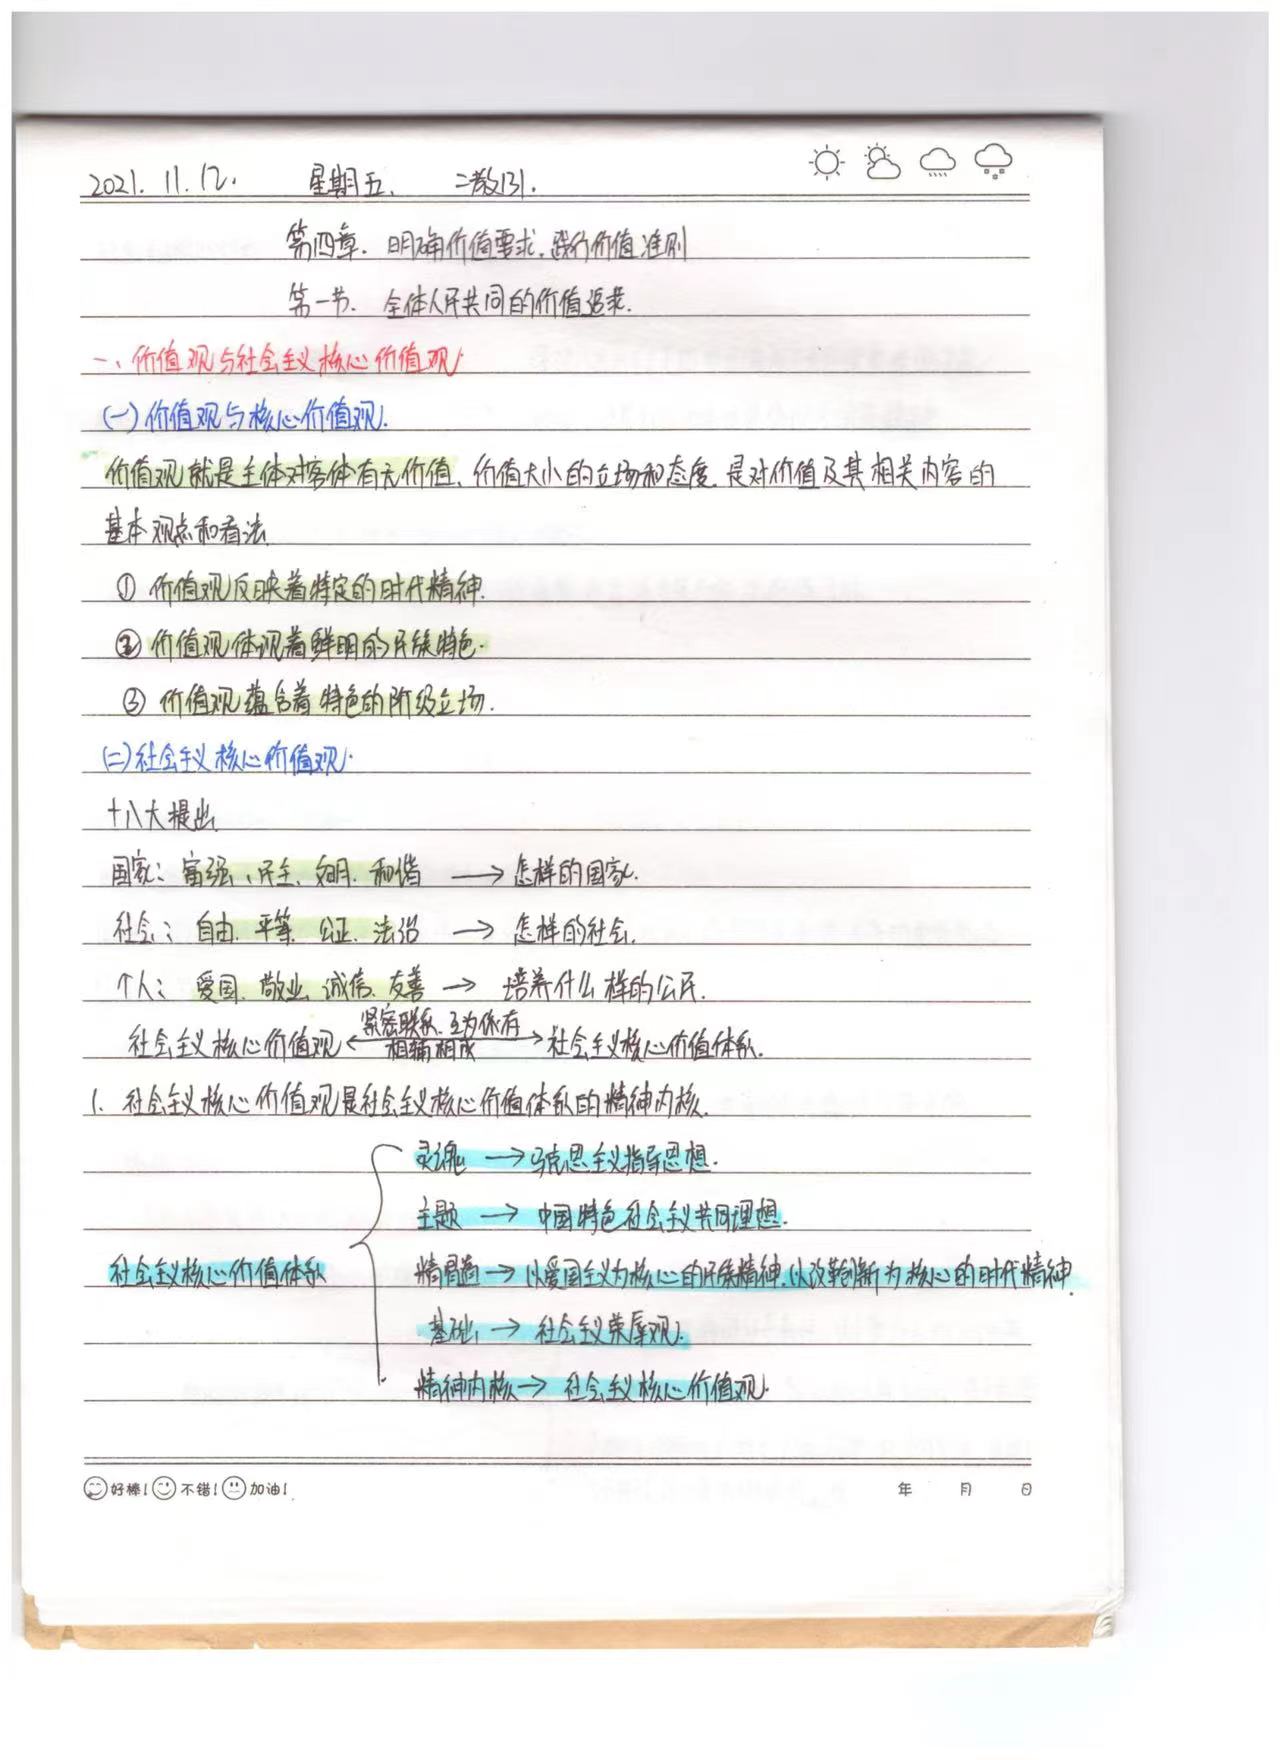 2021. 11. 12. 星期五. 二教131.
第四章. 明确价值要求,践行价值准则
第一节. 全体人民共同的价值追求.
一、价值观与社会主义核心价值观.
(一)价值观与核心价值观.
价值观就是主体对客体有无价值、价值大小的立场和态度.是对价值及其相关内容的
基本观点和看法.
① 价值观反映着特定的时代精神.
② 价值观体现着鲜明的民族特色.
③ 价值观蕴含着特色的阶级立场.
(二)社会主义核心价值观.
十八大提出
国家: 富强、民主、文明、和谐 → 怎样的国家.
社会: 自由、平等、公正、法治 → 怎样的社会.
个人: 爱国、敬业、诚信、友善 → 培养什么样的公民.
紧密联系、互为依存
社会主义核心价值观 ←→ 社会主义核心价值体系.
相辅相成
1. 社会主义核心价值观是社会主义核心价值体系的精神内核.
灵魂 → 马克思主义指导思想.
主题 → 中国特色社会主义共同理想.
社会主义核心价值体系
精髓 → 以爱国主义为核心的民族精神.以改革创新为核心的时代精神.
基础 → 社会主义荣辱观.
精神内核 → 社会主义核心价值观.
好棒! 不错! 加油! 年 月 日